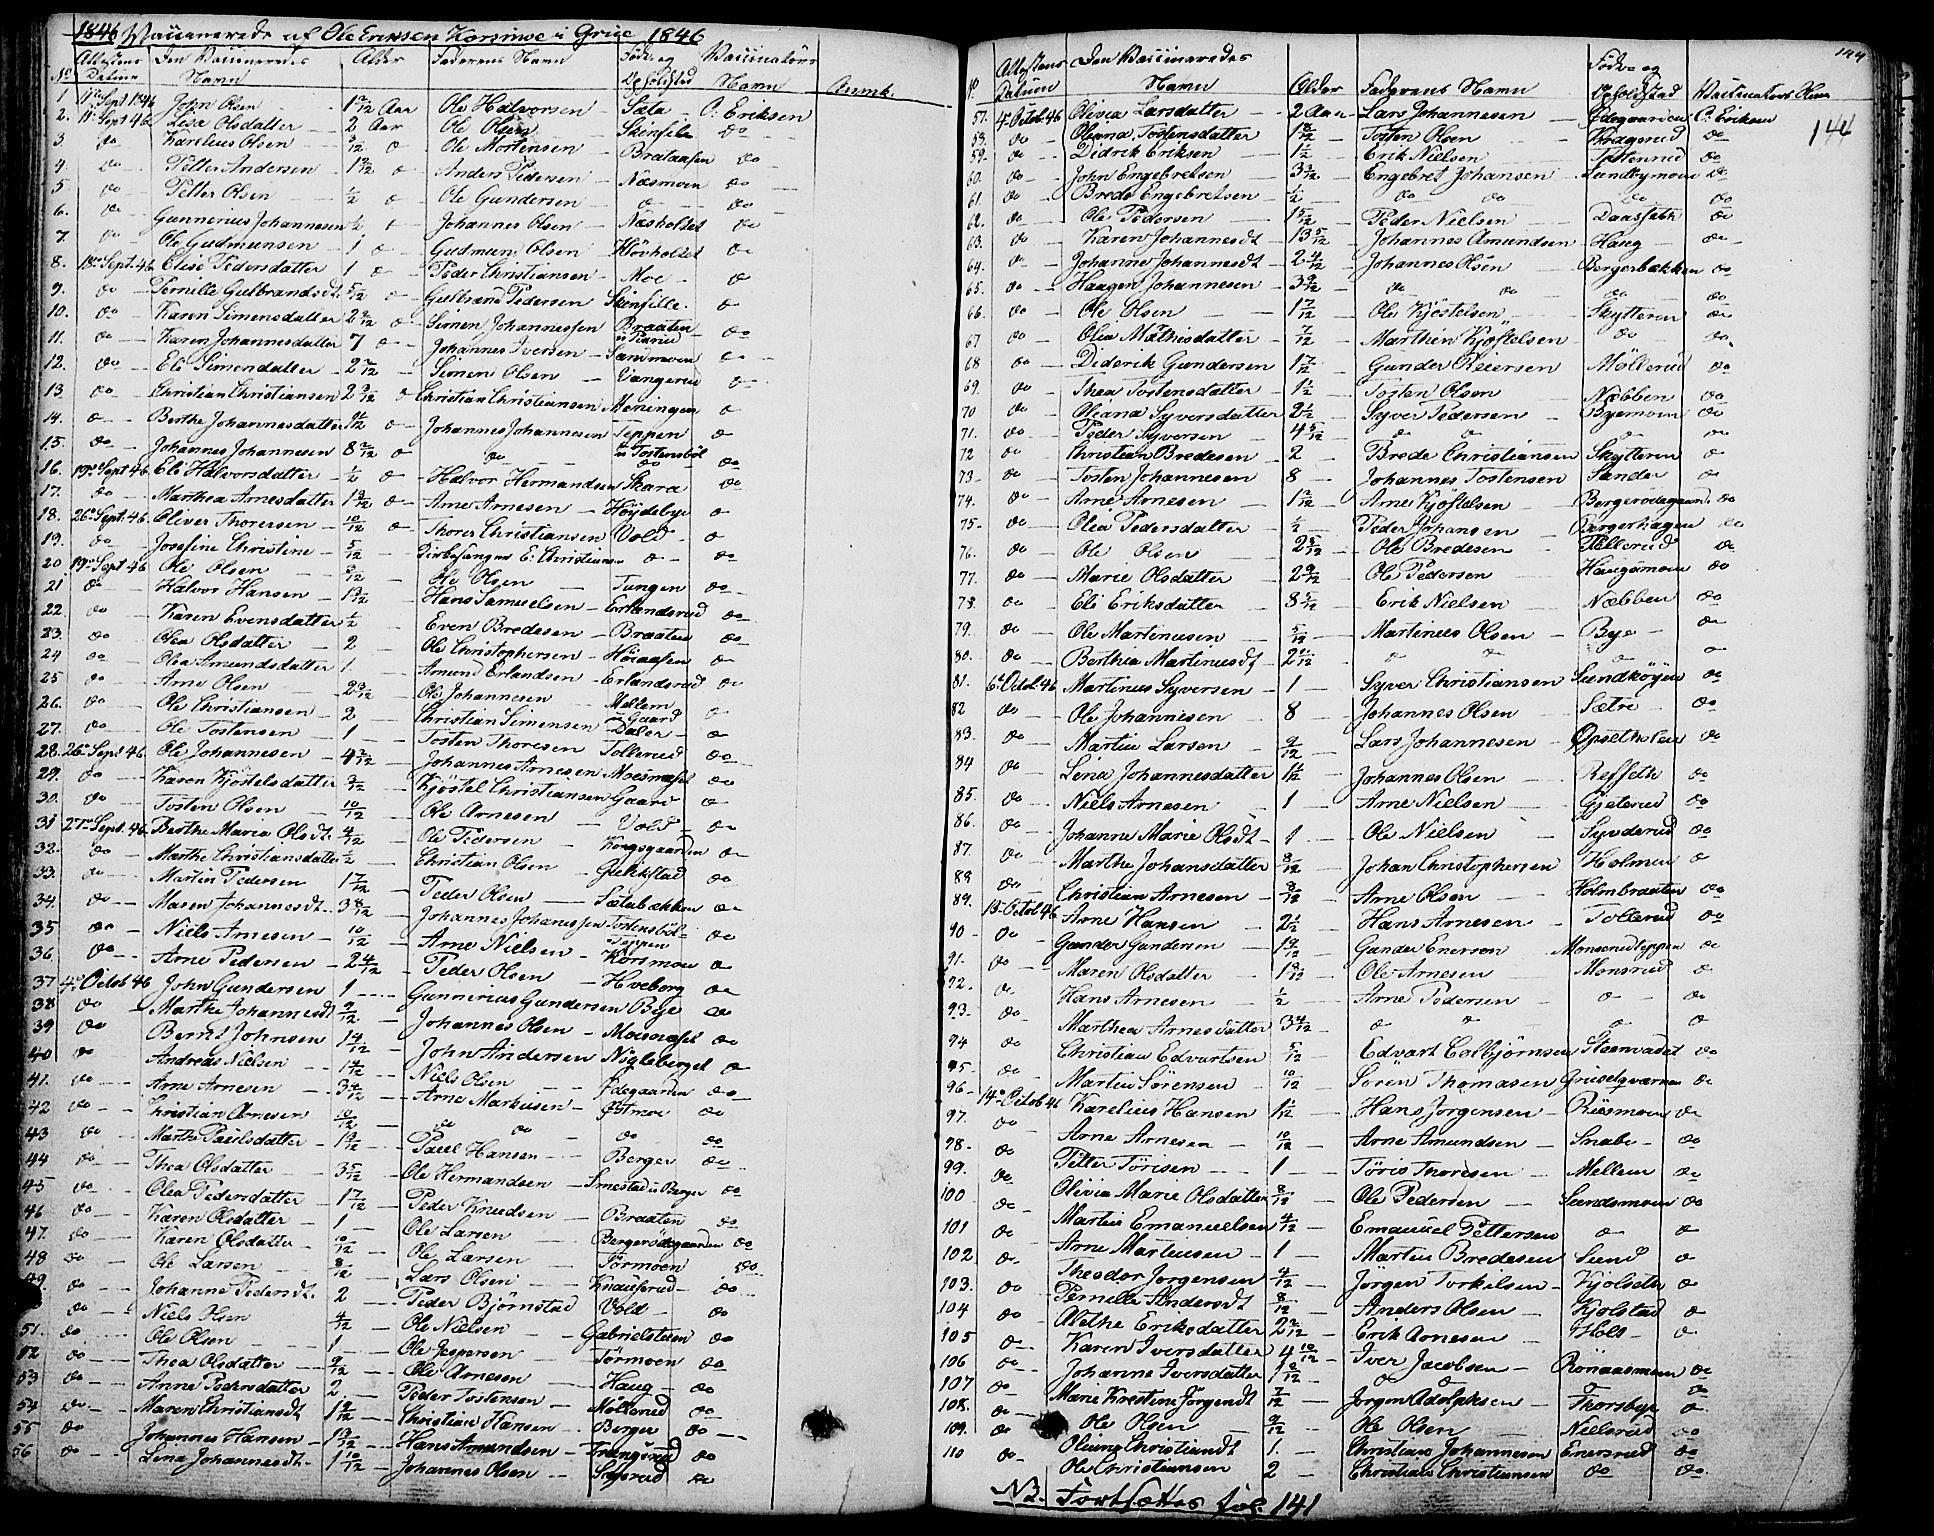 1846 Vaccinerede af Ole Eriksen Korsmoe i Grue 1846
No Attestens Datum Den Vaccineredes Navn Alder Faderens Navn Føde- og Opholdsted Vaccinatørs Navn Anmk.
1. 11te Sept 1846 John Olsen 1 2/12 Aar Ole Halvorsen Sæta O. Eriksen
2. 11te Sept 46 Lisa Olsdatter 2 Aar Ole Olsen Skinfile do
3. do Karelius Olsen Ole Mortensen Braataasen do
4. do Petter Andersen Anders Pedersen Næsmoen do
5. do Petter Olsen 1/2 Ole Gundersen do do
6. do Gunnerius Johannesen Johannes Olsen Næsholdet do
7. do Ole Gudmunsen 1 Gudmun Olsen Hövholdet do
8. 18de Sept. 46 Elise Pedersdatter 1 Peder Christiansen Moe do
9. do Pernille Gulbrandsdt. 5/12 Gulbrand Pedersen Skinfille do
10. do Karen Simensdatter Simen Johannessen Braaten do
11. do Karen Johannesdatter 7 Johannes Iversen Sandmoen do
12. do Eli Simendatter Simen Olsen Vangerud do
13. do Christian Christiansen Christian Christiansen Meningen do
14. do Berthe Johannesdatter Johannes Johannesen Teppen do
15. do Johannes Johannesen do u Tostensböl do
16. 19de Sept 46 Eli Halvorsdatter 1/2 Halvor Hermandsen Skara do
17. do Marthea Arnesdatter Arne Arnesen Höydebye do
18. 26de Sept. 46 Oliver Thorersen 10/12 Thorer Christiansen Vold do
19. do Josefine Christine 5/12 Kirkesanger E. Christiansen do do
20 19de Sept 46 Ole Olsen Ole Olsen Tungen do
21 do Halvor Hansen Hans Samuelsen Erlandsrud do
22 do Karen Evensdatter 1/2 Even Bredesen Braaten do
23. do Olea Olsdatter 2 Ole Christophersen Höiaasen do
24 do Olea Amundsdatter 1 Amund Erlandsen Erlandsrud do
25 do Arne Olsen Ole Johannesen Mellem do
26. do Ole Christiansen 2 Christian Simensen u Gaard do
27. do Ole Tostensen 1 Tosten Thoresen Daler do
28. 26de Sept 46 Ole Johannesen Johannes Arnesen Tollerud do
29. do Karen Kjöstelsdatter Kjöstel Christiansen Moesnæset do
30. do Tosten Olsen 10/12 Ole Arnesen Gaard do
31 27de Sept. 46 Berthe Maria Olsdt. Ole Pedersen Vold do
32. do Marthe Christiansdatter 1/2 Christian Olsen Kongsgaarden do
33. do Martin Pedersen 1 7/12 Peder Olsen Gulikstad do
34. do Maren Johannesdt. 3 8/12 Johannes Johannessen Sætabækken do
35 do Niels Arnesen 10/12 Arne Nielsen Tostensböl Teppen do
36. do Arne Pedersen 2 4/12 Peder Olsen Korsmoen do
37 4de Octob 46 John Gundersen 1 Gunnerius Gundersen Hveberg do
38 do Marthe Johannesdt Johannes Olsen Bye do
39 do Bernt Johnsen John Andersen Moesnæset do
40 do Andreas Nielsen Niels Olsen Nögleberget do
41. do Arne Arnesen Arne Markusen Ödegaarden do
42 do Christian Arnesen 10/12 do Östmoe do
43 do Marthe Paulsdatter Paul Hansen do do
44 do Thea Olsdatter 3 5/12 Ole Hermandsen Berger do
45 do Olea Pedersdatter 1 7/12 Peder Knudsen Smestad u Berger do
46 do Karen Olsdatter 1 Ole Larsen Braaten do
47. do Karen Olsdatter 10/12 Ole Larsen Bergersödegaarden do
48 do Ole Larsen 8/12 Lars Olsen Törmoen do
49. do Johanne Pedersdt. 2 Peder Björnstad Knausrud do
do Niels Olsen 4/12 Ole Nielsen Vold do
51. do Ole Olsen 1 Ole Jespersen Gabrielsteen do
52 do Thea Olsdatter Ole Arnesen Törmoen do
53 do Anne Pedersdatter 2 Peder Tostensen Haug do
54 do Maren Christiansdt Christian Hansen Möllerud do
55 do Johannes Hansen Hans Amundsen Berger do
56 do Lina Johannesdt. 1 10/12 Johannes Olsen Skysrud do
144
No. Attestens Datum Den Vaccineredes Navn Alder Faderens Navn Føde- og Opholdstad Vaccinatørs Navn
57. 4de Octob. 46 Olivia Larsdatter 2 Aar Lars Johannesen Ödegaarden O. Eriksen
144
58. do Oleana Tostensdatter Tosten Olsen Kragsrud do
59. do Didrik Eriksen 1 1/2 Erik Nielsen Tottenrud do
60. do John Engebretsen Engebret Johansen Sundbymoen do
61. do Brede Engebretsen 1/2 do do do do
62. do Ole Pedersen Peder Nielsen Daasseth do
63. do Karen Johannesdt 13 5/12 Johannes Amundsen Haug do
64. do Johanne Johannesdt 2 4/12 Johannes Olsen Bergerbækken do
65. do Haagen Johannesen 3 9/12 do do do do
66. do Ole Olsen 1 7/12 Ole Kjöstelsen Skytteren do
67 do Olea Mathisdatter 7/12 Marthin Kjöstelsen do do
68 do Diderik Gundersen 1 7/12 Gunder Reiersen Möllerud do
69. do Thea Tostensdatter 1 1/2 Tosten Olsen Næbben do
70 do Oleana Syversdatter 2 1/2 Syver Pedersen Byemoen do
71. do Peder Syversen 4 5/12 do do do do
72 do Christian Bredesen 2 Brede Christiansen Skytteren do
73 do Tosten Johannesen 8 Johannes Tostensen Sander do
74. do Arne Arnesen Arne Kjöstelsen Bergersödegaard. do
75. do Olea Pedersdatter 1/2 Peder Johansen Bergerhagen do
76. do Ole Olsen 2 5/12 Ole Bredesen Pellerud do
77. do Marie Olsdatter 2 9/12 Ole Pedersen Haugsmoen do
78. do Eli Eriksdatter 8 5/12 Erik Nielsen Næbben do
79. do Ole Martinusen 5/12 Martinus Olsen Bye do
80. do Berthea Martinusdt do do do do
81. 6te Octob. 46 Martinus Syversen 1 Syver Christiansen Sundköyen do
82 do Ole Johannesen 8 Johannes Olsen Sætre do
83. do Martin Larsen 9/12 Lars Johannesen Opsetholen do
84 do Lina Johannesdatter Johannes Olsen Reffeth do
85. do Niels Arnesen 1 Arne Nielsen Gjeterud do
86. do Johanne Marie Olsdt 1 Ole Nielsen Synderud do
87. do Marthe Johansdatter 8/12 Johan Christophersen Holmen do
88 do Christian Arnesen 8/12 Arne Olsen Holmbraaten do
89. 13de Octob 46 Arne Hansen 2 1/2 Hans Arnesen Tollerud do
90 do Gunder Gundersen Gunder Enersen Monsrudteppen do
91. do Maren Olsdatter Ole Arnesen Monsrud do
92. do Hans Arnesen 1/2 Arne Pedersen do do
93. do Marthea Arnesdatter 3 4/12 do do do do
94 do Christian Edvartsen 5/12 Edvart Colbjörnsen Steenvadet do
95 do Martin Sörensen 10/12 Sören Thomasen Gruselqværnen do
96 14de Octob 46 Karelius Hansen Hans Jörgensen Riismoen do
97. do Arne Arnesen 10/12 Arne Amundsen Snabe do
98. do Petter Törisen 1 Töris Thoresen Mellem do
99. do Olivia Marie Olsdatter 8/12 Ole Pedersen Sundsmoen do
100 do Martin Emanuelsen 4/12 Emanuel Pettersen do do
101 do Arne Martinsen 1 Martin Bredesen Sund do
102. do Theodor Jorgensen 4/12 Jörgen Torkilsen Kjolseth do
103. do Pernille Andersdt 8/12 Anders Olsen Kjolstad do
104 do Alethe Eriksdatter Erik Arnesen Hols do
105 do Karen Iversdatter 4 10/12 Iver Jacobsen Rönaasmoen do
106 do Johanne Iversdatter do do do do
107 do Marie Kristine Jörgendt 7/12 Jörgen Adolphsen Thorsbye do
108. do Ole Olsen 9/12 Ole Olsen Nielsrud do
109. do Oliana Christiandt 1. Christian Johannesen Enersrud do
110 do Ole Christiansen 2 Christian Christiansen do do
NB. Fortsættes fol. 141